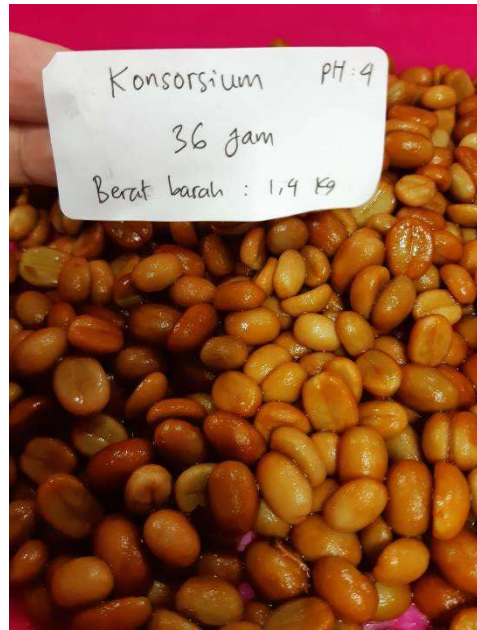 Konsorsium pH : 4
36 Jam
Berat barah : 1,4 Kg